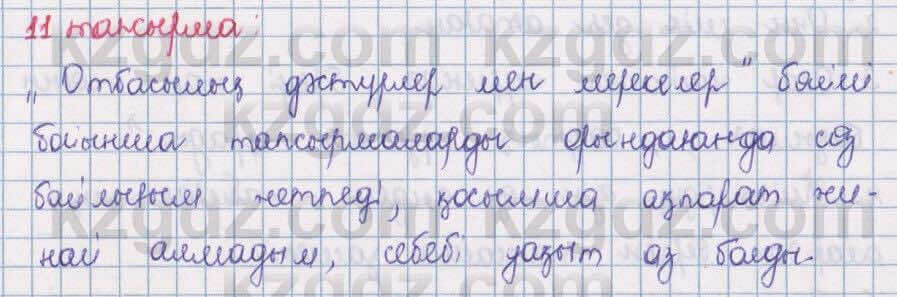 11 тапсырма.
„Отбасылық дәстүрлер мен мерекелер" бөлімі
бойынша тапсырмаларды орындағанда сөз
байлығым жетпеді, қосымша ақпарат жи-
най алмадым, себебі уақыт аз болды.
kzgdz.com kzgdz.com
kzgdz.com kzgdz.com